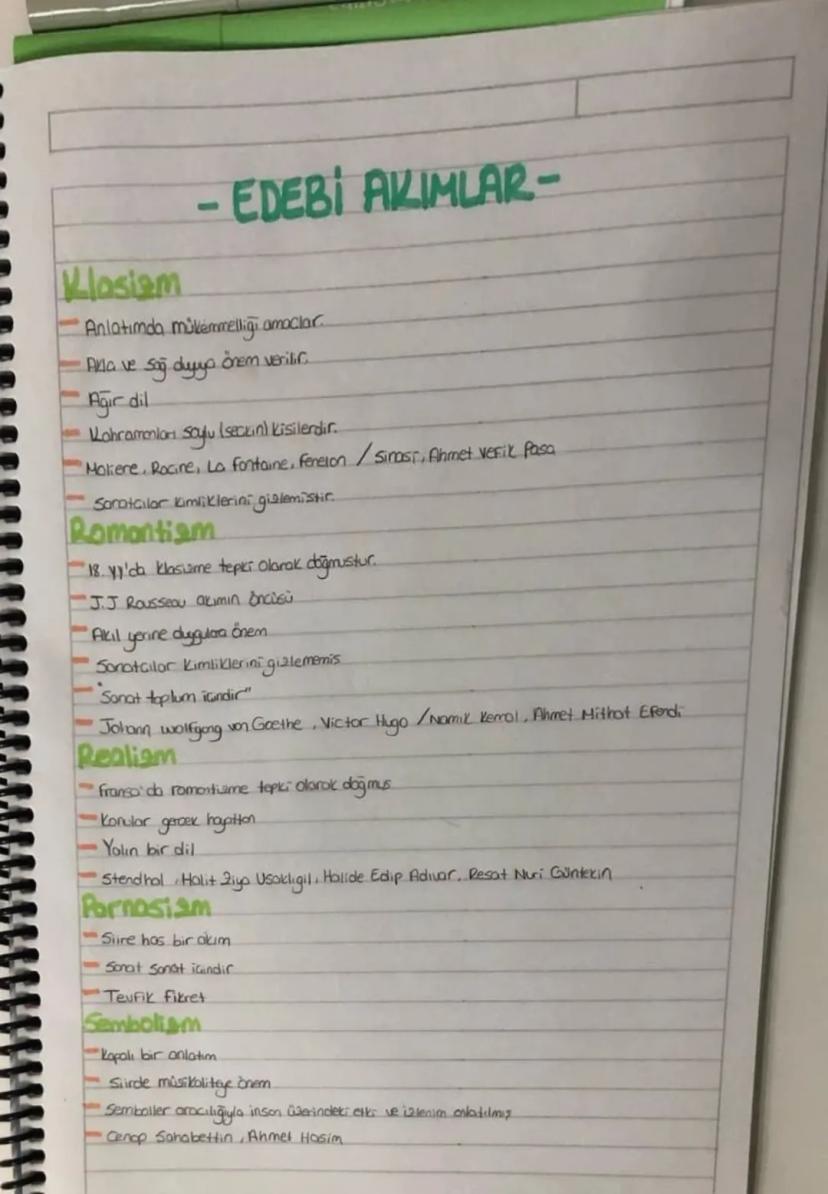 - EDEBİ AKIMLAR -
Klasizm
- Anlatımda mükemmelliği amaclar.
- Akla ve sağ duyuya önem verilir.
- Ağır dil
- Kahramanları soylu (seckin) kisilerdir.
- Moliere, Racine, La Fontaine, Fenelon / Sinasi, Ahmet Vefik Pasa
- Sanatcılar kimliklerini gizlemistir.
Romantizm
- 18. yy'da klasizme tepki olarak doğmustur.
- J.J Rousseau akımın öncüsü
- Akıl yerine duygulara önem
- Sanatcılar kimliklerini gizlememis
- "Sanat toplum icindir"
- Johann wolfgang von Goethe, Victor Hugo / Namık Kemal, Ahmet Mithat Efendi
Realizm
- Fransa'da romantizme tepki olarak doğmus
- Konular gercek hayattan
- Yalın bir dil
- Stendhal, Halit Ziya Usaklıgil, Halide Edip Adıvar, Resat Nuri Güntekin
Parnasizm
- Siire has bir akım
- Sanat sanat icindir
- Tevfik Fikret
Sembolizm
- Kapalı bir anlatım
- Siirde müsikaliteye önem
- Semboller aracılığıyla insan üzerindeki etki ve izlenim anlatılmış
- Cenap Sahabettin, Ahmet Hasim